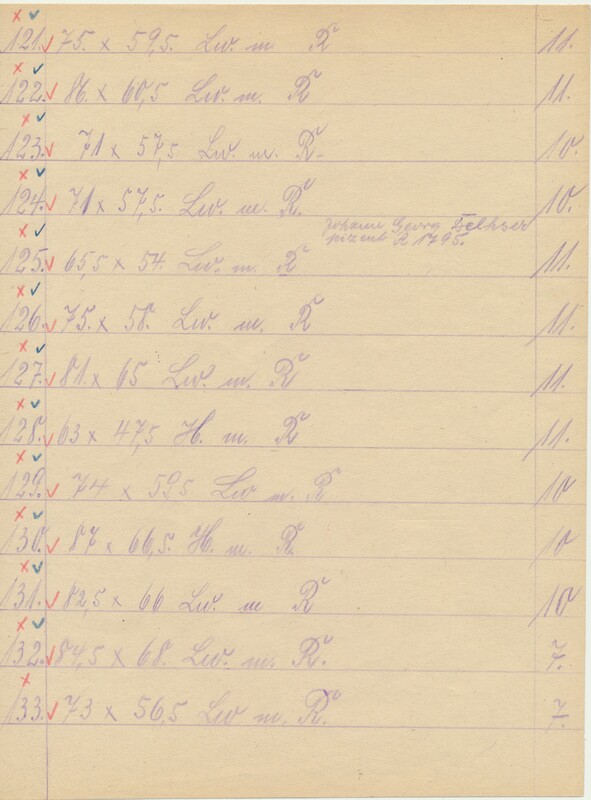 121. 75. x 59,5. Lw. m. R 11.
122. 86. x 60,5 Lw. m. R 11.
123. 71 x 57,5 Lw. m. R. 10.
124. 71 x 57,5. Lw. m. R. 10.
Johann Georg
pixent R 1795.
125. 65,5 x 54. Lw. m. R 11.
126. 75. x 58. Lw. m. R 11.
127. 81. x 65 Lw. m. R 11.
128. 63 x 47,5 H. m. R 11.
129. 74 x 59,5 Lw m. R 10
130. 87 x 66,5. H. m. R. 10
131. 82,5 x 66 Lw. m R 10
132. 84,5 x 68. Lw. m. R. 7.
133. 73 x 56,5 Lw m. R. 7.